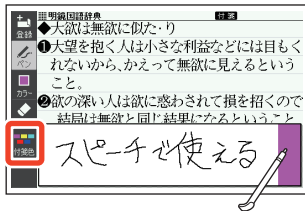 明鏡国語辞典 付箋
◆大欲は無欲に似た・り
❶大望を抱く人は小さな利益などには目もく
れないから、かえって無欲に見えるという
こと。
❷欲の深い人は欲に惑わされて損を招くので
結局は無欲と同じ結果になるということ
登録
ペン
カラー
付箋色
スピーチで使える